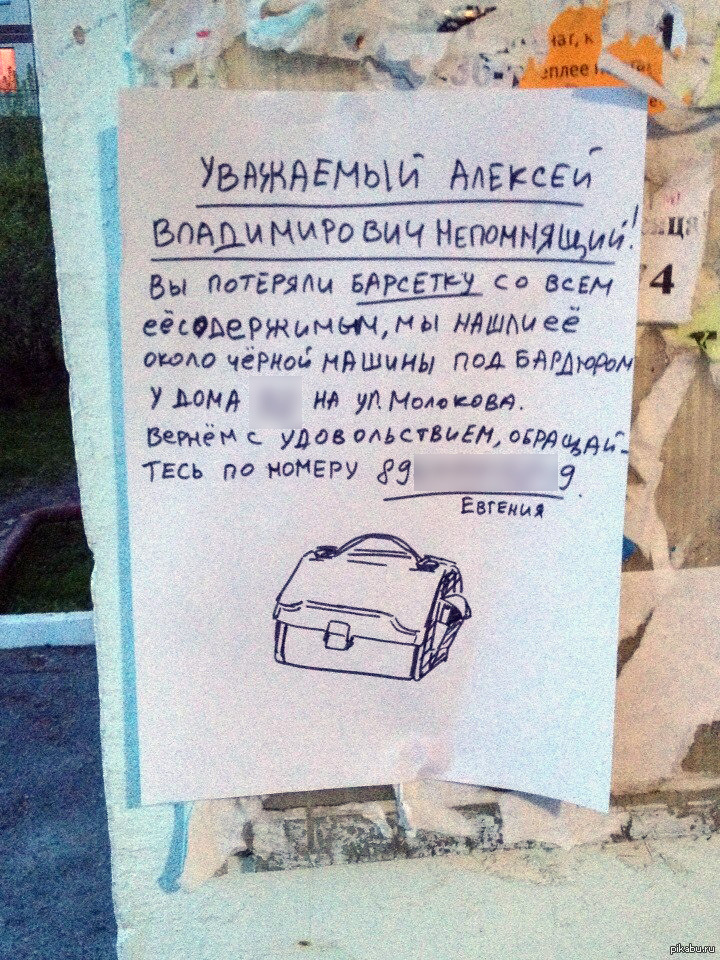 чат, к
36-
плее
УВАЖАЕМЫЙ АЛЕКСЕЙ
ВЛАДИМИРОВИЧ НЕПОМНЯЩИЙ!
ВЫ ПОТЕРЯЛИ БАРСЕТКУ СО ВСЕМ
ЕЁ СОДЕРЖИМЫМ, МЫ НАШЛИ ЕЁ
ОКОЛО ЧЁРНОЙ МАШИНЫ ПОД БАРДЮРОМ
У ДОМА НА УЛ. МОЛОКОВА.
ВЕРНЁМ С УДОВОЛЬСТВИЕМ, ОБРАЩАЙ-
ТЕСЬ ПО НОМЕРУ 89 9.
ЕВГЕНИЯ
4
pikabu.ru